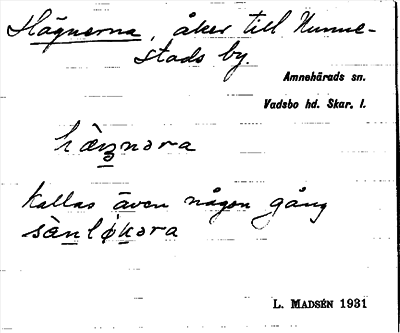 Hägnerna, åker till Hunne-
stads by.
Amnehärads sn.
Vadsbo hd. Skar. l.
hæ̀ŋnəra
kallas även någon gång
sæ̀nlǿkəra
L. MADSÉN 1931